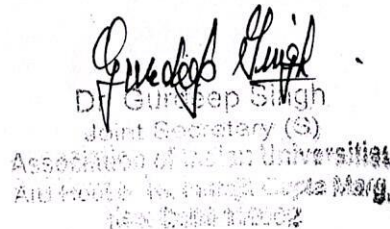 Gurdeep Singh
Dr Gurdeep Singh
Joint Secretary (S)
Association of Indian Universities
AIU House, Gupta Marg,
New Delhi